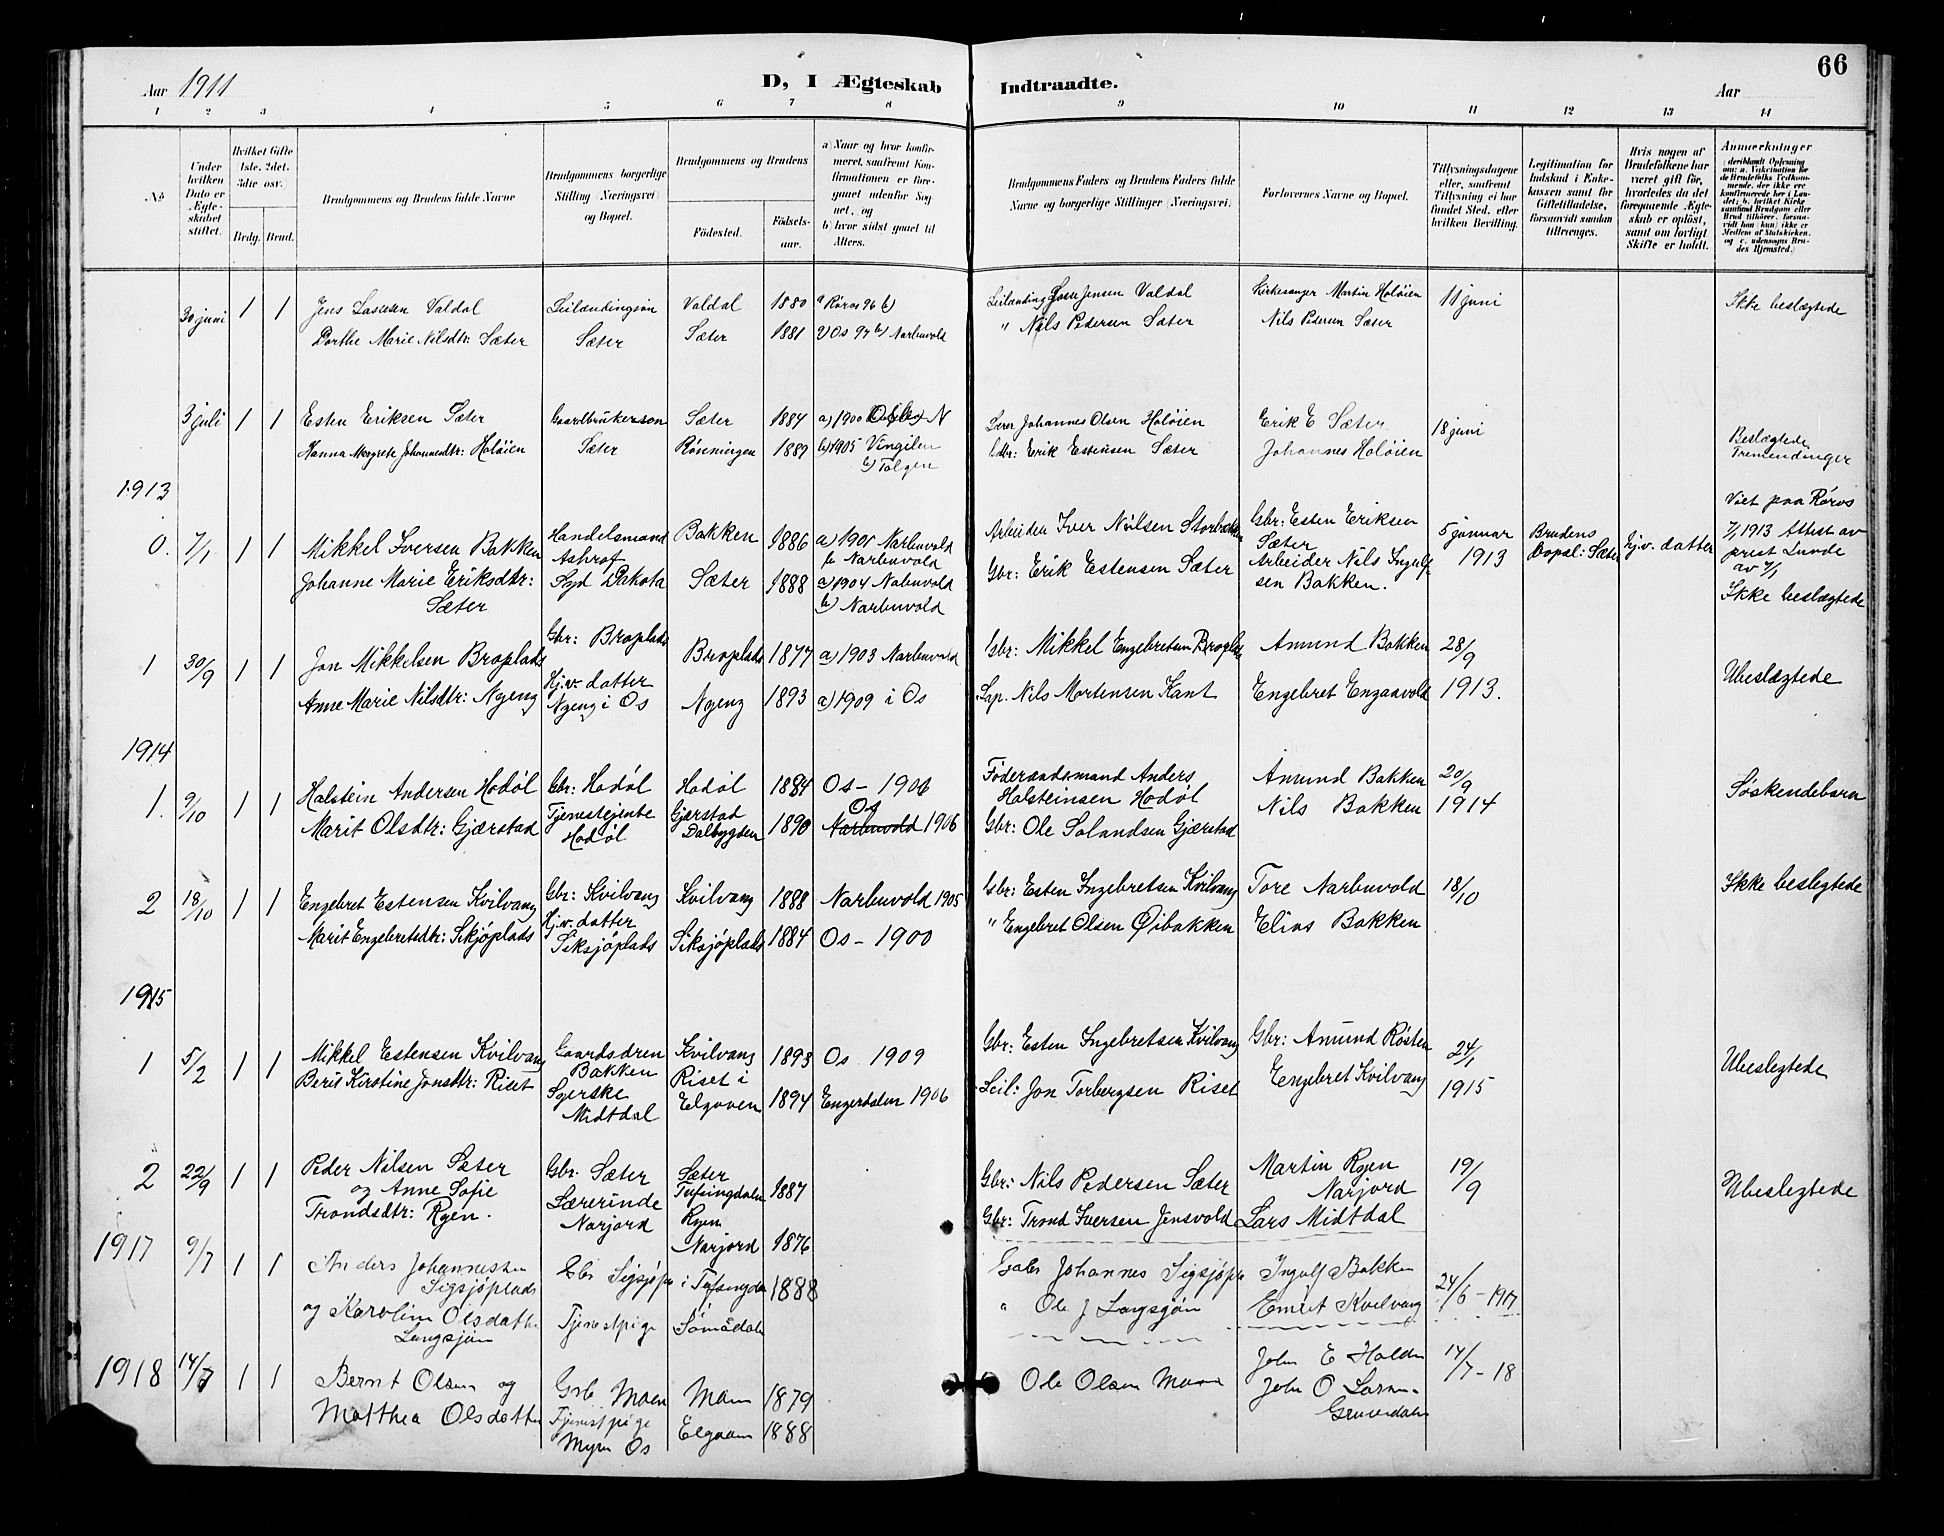 66
Aar 1911
D, I Ægteskab Indtraadte.
Aar
1 2 3 4 5 6 7 8 9 10 11 12 13 14
No
Under hvilken Dato er Ægteskabet stiftet.
Hvilket Gifte 1ste. 2det. 3die osv.
Brdg. Brud.
Brudgommens og Brudens fulde Navne
Brudgommens borgerlige Stilling (Næringsvei) og Bopæl.
Brudgommens og Brudens
Fødested.
Fødselsaar.
a) Naar og hvor konfirmeret, saafremt Konfirmationen er foregaaet udenfor Sognet, og
b) hvor sidst gaaet til Alters.
Brudgommens Faders og Brudens Faders fulde Navne og borgerlige Stillinger (Næringsvei.
Forlovernes Navne og Bopæl.
Tillysningsdagene eller, saafremt Tillysning ei har fundet Sted, efter hvilken Bevilling.
Legitimation for Indskud i Enkekassen samt for Giftetilladelse, forsaavidt saadan tiltrænges.
Hvis nogen af Brudefolkene har været gift før, hvorledes da det foregaaende Ægteskab er opløst, samt om lovligt Skifte er holdt.
Anmerkninger
30 juni 1 1
Jens Lassesen Valdal
Leilændingsøn
Valdal 1880
a Røros 96 b)
Leilænding Lasse Jensen Valdal
Kirkesanger Martin Holøien
11 juni
Ikke beslægtede
Dorthe Marie Nilsdtr: Sæter
Sæter
Sæter 1881
a) Os 97 b) Narbuvold
" Nils Pedersen Sæter
Nils Pedersen Sæter
3 juli 1 1
Esten Eriksen Sæter
Gaardbrukersøn
Sæter 1884
a) 1900
Johannes Olsen Holøien
Erik E Sæter
18 juni
Hanna Margrete Johannesdtr: Holøien
Sæter
Rønningen 1889
b) 1905 Vingelen
b) Tolgen
Erik Estensen Sæter
Johannes Holøien
Beslægtede
Tremendinger
1913
0. 7/1 1 1
Mikkel Iversen Bakken
Handelsmand
Bakken 1886
a) 1901 Narbuvold
b Narbuvold
Arbeider Iver Nilsen Storbækken
Gbr: Esten Eriksen
Sæter
5 januar
1913
Brudens
Bopæl: Sæter
Hj.v. datter
Viet paa Røros
7/1 1913 Attest av
prest Lunde
av 7/1
Johanne Marie Eriksdtr:
Sæter
Syd Dakota
Sæter 1888
a) 1904 Nabuvold
b) Narbuvold
Gbr: Erik Estensen Sæter
Arbeider Nils Ingulf
sen Bakken.
Ikke beslægtede
1 30/9 1 1
Jon Mikkelsen Broplads
Gbr: Broplads
Broplads 1877
a) 1903 Narbuvold
Gbr: Mikkel Engebretsen Broplds
Amund Bakken
28/9
1913.
Ubeslægtede
Anne Marie Nilsdtr: Nyeng
Hj.v. datter
Nyeng i Os
Nyeng 1893
a) 1909 i Os
Nils Mortensen Kant
Engebret Engaavold
1914
1. 9/10 1 1
Halstein Andersen Hodøl
Gbr: Hodøl
Hodøl 1884
Os – 1906
Føderaadsmand Anders
Halsteinsen Hodøl
Amund Bakken
20/9
1914
Søskendebarn
Marit Olsdtr: Gjærstad
Tjenestejente
Hodøl
Gjærstad
Dalbygden 1890
Os
Narbuvold 1906
Gbr: Ole Salandsen Gjærstad
Nils Bakken
2 18/10 1 1
Engebret Estensen Kvilvang
Gbr: Kvilvang
Kvilvang 1888
Narbuvold 1905
Gbr: Esten Ingebretsen Kvilvang
Tore Narbuvold
18/10
Ikke beslegtede
Marit Engebretsdtr: Siksjøplads
Hj.v. datter
Siksjøplads
Siksjøplads 1884
Os – 1900
" Engebret Olsen Øibakken
Elias Bakken
1915
1 5/2 1 1
Mikkel Estensen Kvilvang
Gaardsdreng
Bakken
Kvilvang 1893
Os 1909
Gbr: Esten Ingebretsen Kvilvang
Gbr: Amund Røsten
24/1
1915
Ubeslegtede
Berit Kirstine Jonsdtr: Riset
Sÿerske
Midtdal
Riset i
Elgaaen 1894
Engerdalen 1906
Leil: Jon Torbergsen Riset
Engebret Kvilvang
2 22/9 1 1
Peder Nilsen Sæter
og Anne Sofie
Trondsdtr: Ryen.
Gbr. Sæter
Lærerinde
Narjord
Sæter
Tufsingdalen 1887
Ryen
Narjord 1876
Gbr: Nils Pedersen Sæter
Gbr: Trond Iversen Jensvold
Martin Ryen
Narjord
Lars Midtdal
19/9
Ubeslegtede
1917 9/7 1 1
Anders Johannessen
Sigsjøplads
og Karoline Olsdatter
Langsjøen
Gbr Sigsjøpl
Tjenestpige
i Tufsingda 1888
Sømådalen
Gabr Johannes Sigsjøpl
" Ole J Langsjøen
Ingulf Bakken
Emret Kvilvang
24/6 – 1917
1918 14/7 1 1
Bernt Olsen og
Matthea Olsdatter
Grb Moen
Tjenestpige
Myren Os
Moen 1879
Elgaaen 1888
Ole Olsen Moen
John E Holden
John O
14/7 – 18